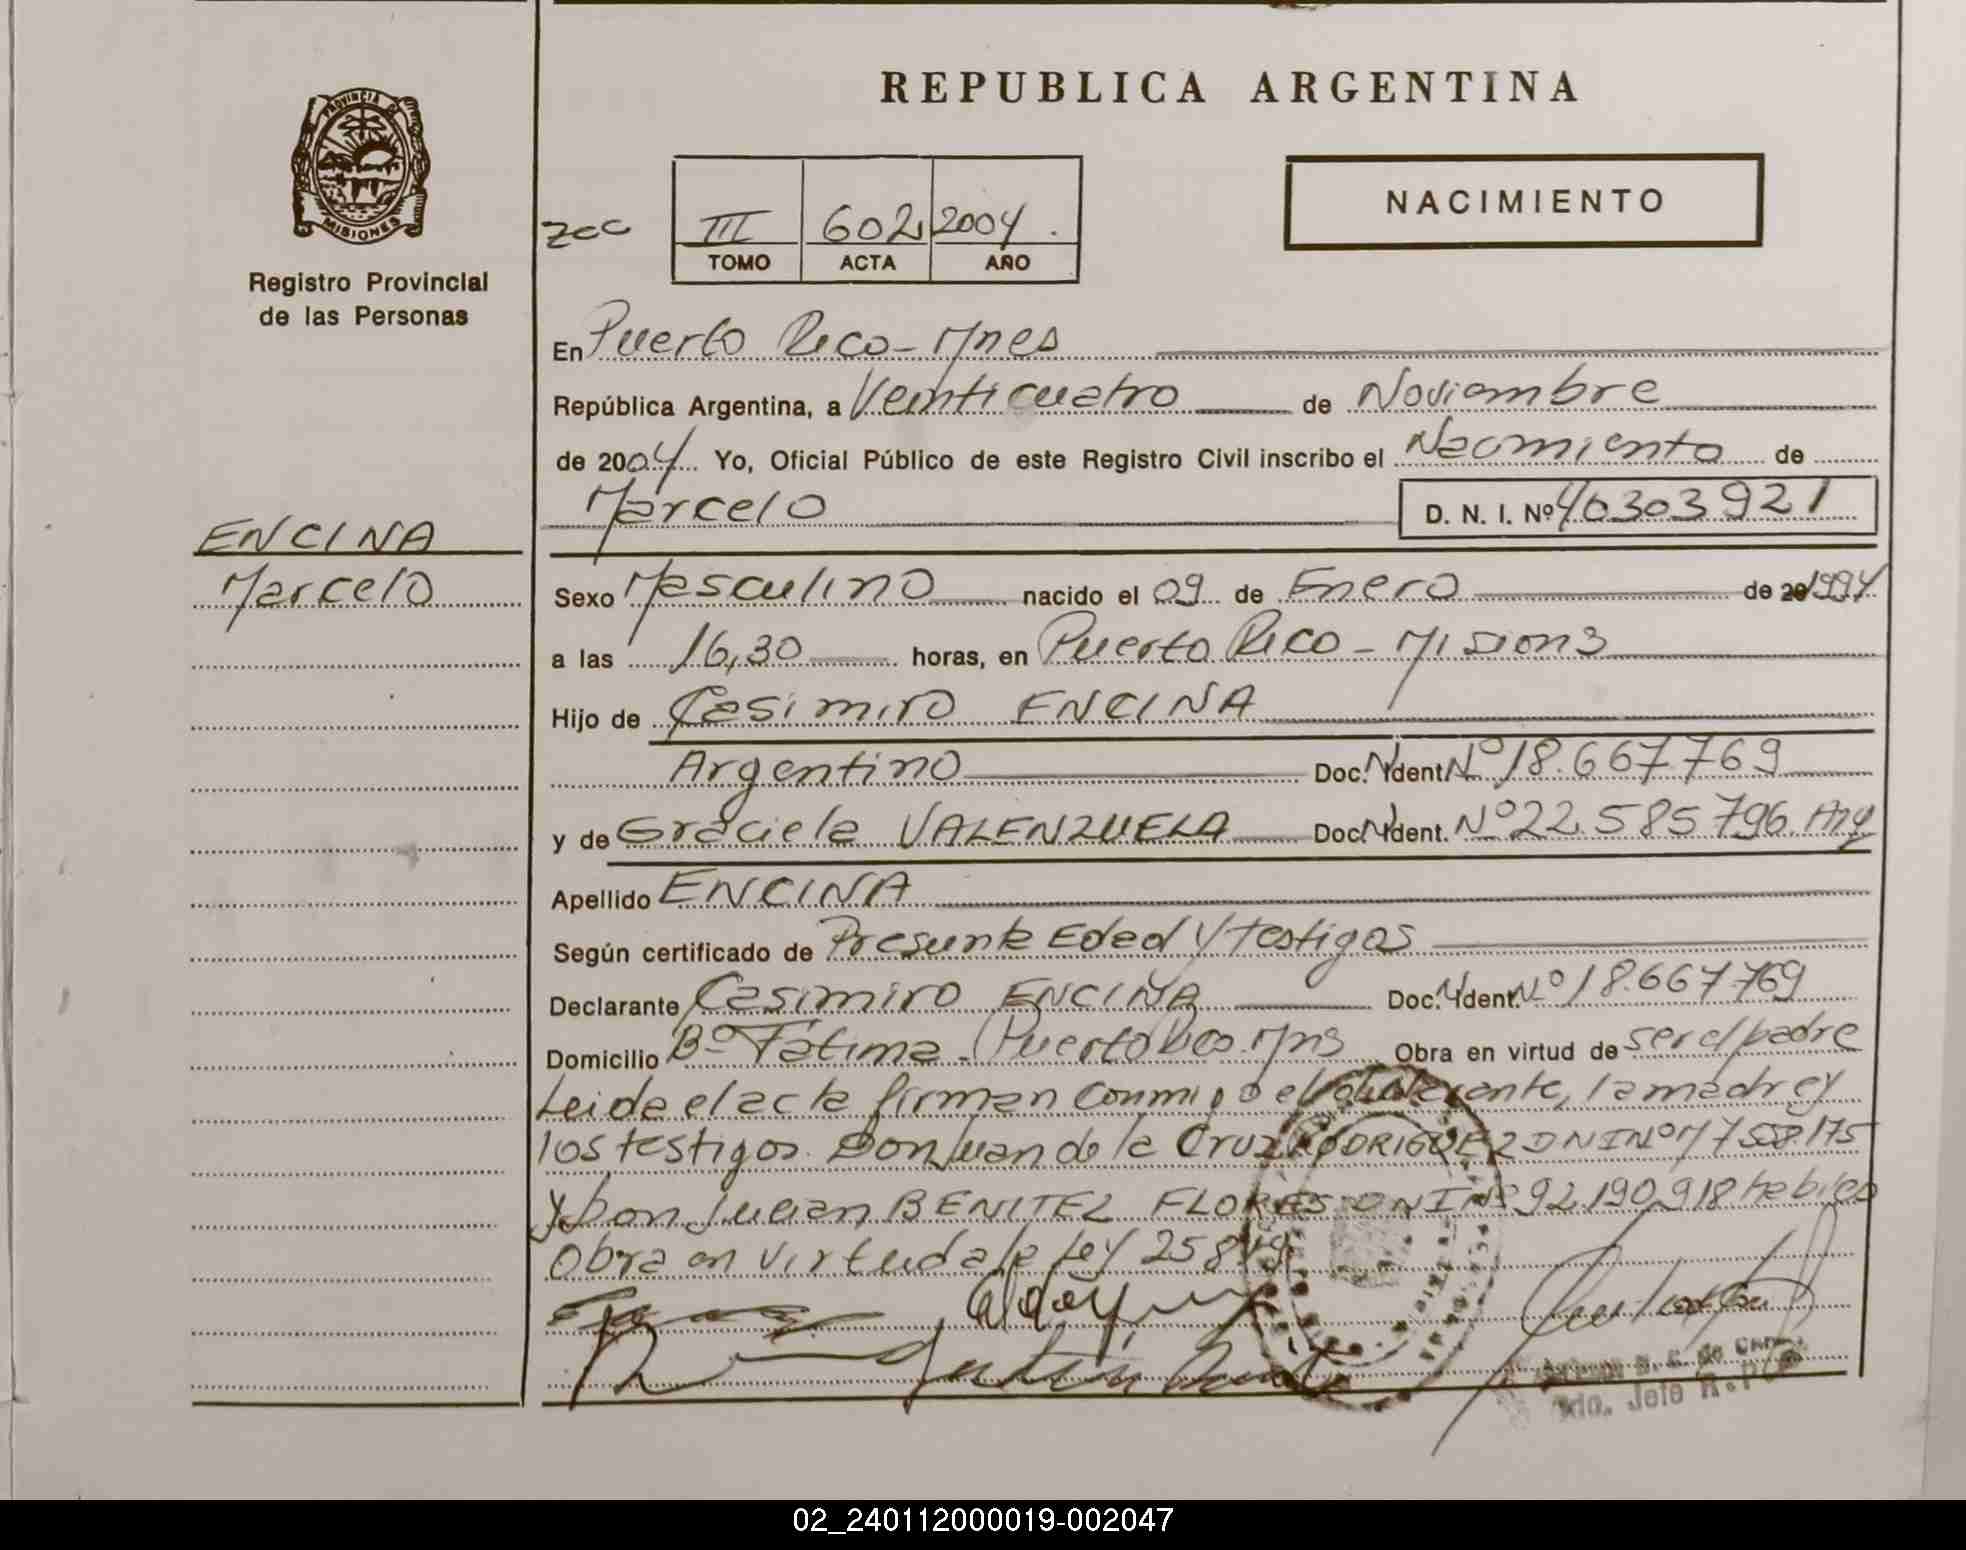 REPUBLICA ARGENTINA
PROVINCIA DE
MISIONES
Registro Provincial
de las Personas
NACIMIENTO
III 602 2004.
TOMO ACTA AÑO
En Puerto Rico - Mnes
República Argentina, a Veinticuatro de Noviembre
de 2004. Yo, Oficial Público de este Registro Civil inscribo el Nacimiento de
Marcelo D. N. I. Nº 40303921
ENCINA
Marcelo
Sexo Masculino nacido el 09 de Enero de 20 1994
a las 16,30 horas, en Puerto Rico - Misions
Hijo de Casimiro ENCINA
Argentino Doc. N. Ident. Nº 18.667.769
y de Graciela VALENZUELA Doc. N. Ident. Nº 22.585.796 Arg
Apellido ENCINA
Según certificado de Presunta Edad y testigos
Declarante Casimiro ENCINA Doc. Ident. Nº 18.667.769
Domicilio Bº Fatima - Puerto Rico. Mns Obra en virtud de ser el padre
Leida el acta firman conmigo el declarante, la madre y
los testigos. Don Juan de la Cruz RODRIGUEZ DNI Nº 7.558.175
y Don Julian BENITEZ FLORES DNI Nº 92.190.918 habiles
Obra en virtud a la Ley 25819
Jefe R.P.
02_240112000019-002047